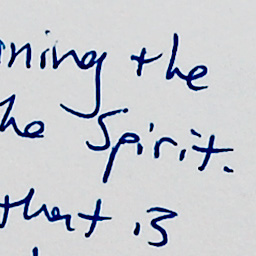 ning the
he Spirit.
that is